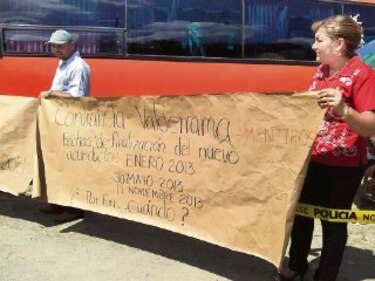 Consuelela Valderrama MENTIROS
fechas de finalización del nuevo
acueducto: ENERO 2013
30 MAYO 2013
NOVIEMBRE 2013
¿ Por fin... cuándo ?
SE POLICIA